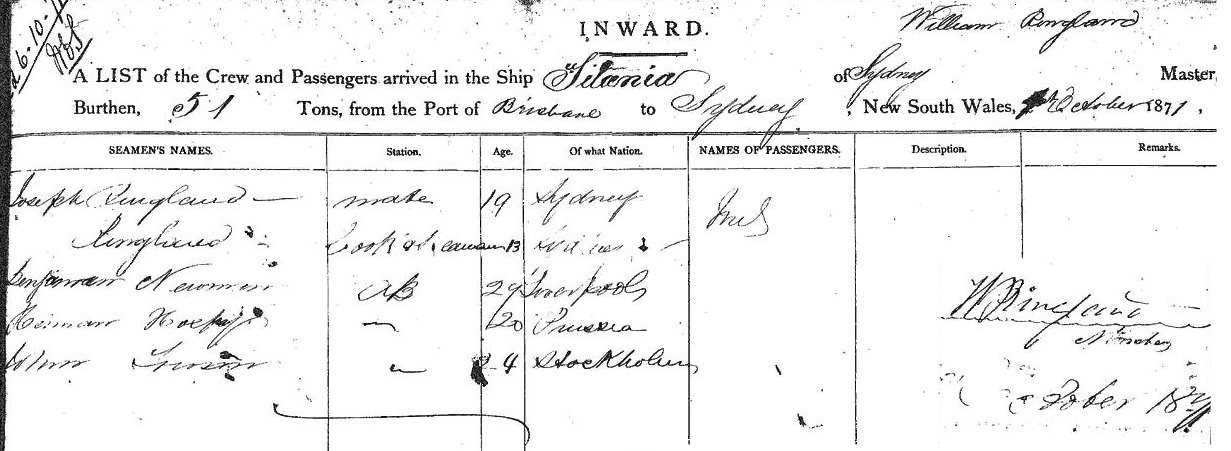 26-10-
INWARD.
William Ringland
A LIST of the Crew and Passengers arrived in the Ship "Titania of Sydney Master
Burthen, 51 Tons, from the Port of Brisbane to Sydney, New South Wales, October 1871.
SEAMEN'S NAMES. Station. Age. Of what Nation. NAMES OF PASSENGERS. Description. Remarks.
Joseph Ringland mate 19 Sydney
Ringland Cook & Seaman 13
Benjaman Newman AB 29 Liverpool
20 Prussia
John 24 Stockholm
W Ringland
October 1871